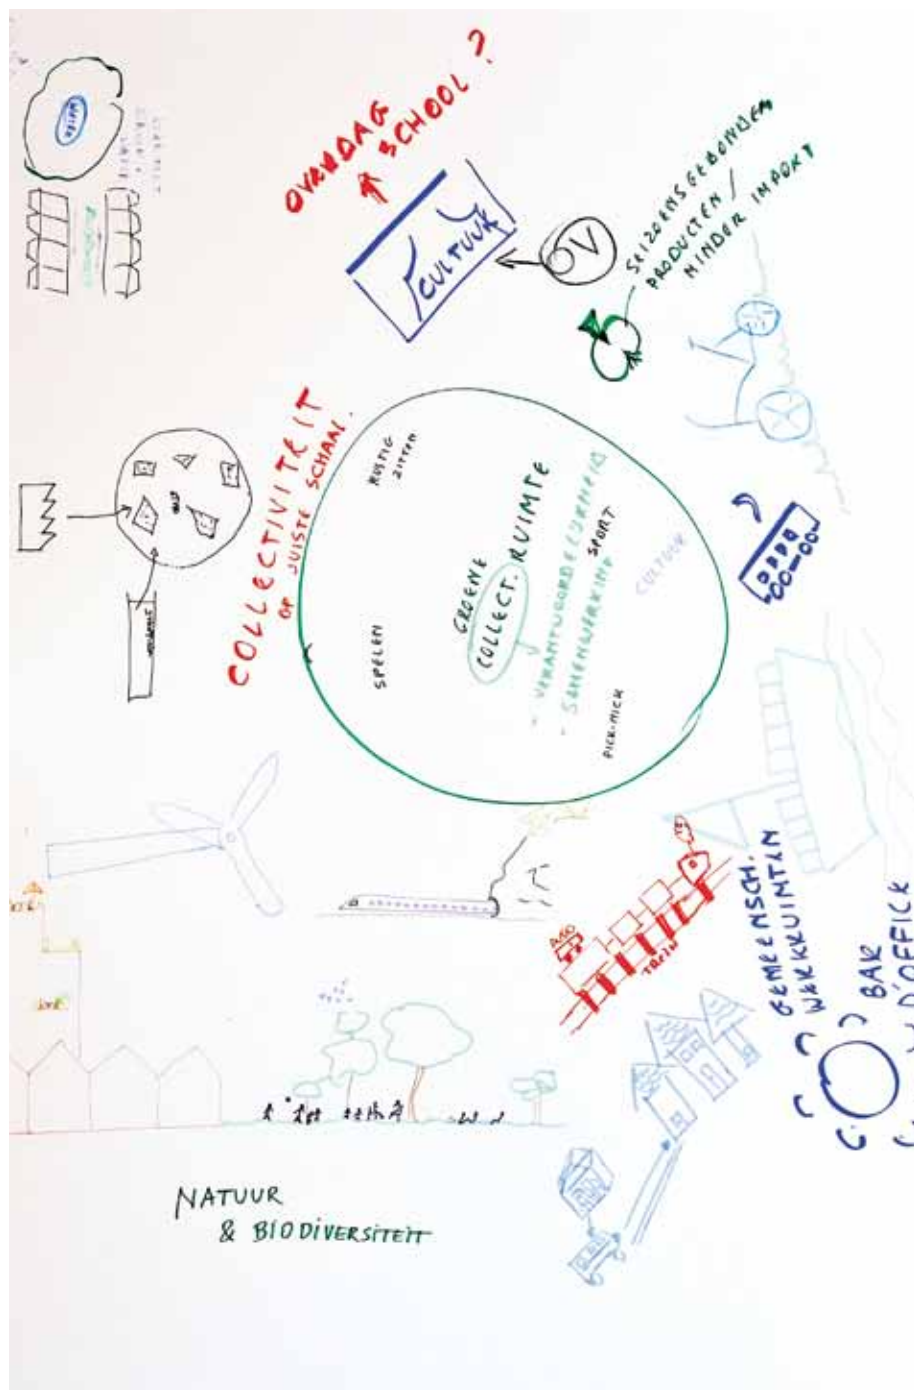 WATER
OVERDAG
SCHOOL?
CULTUUR
OV
SEIZOENSGEBONDEN
PRODUCTEN /
MINDER IMPORT
COLLECTIVITEIT
OP JUISTE SCHAAL.
RUSTIG
ZITTEN
GROENE
COLLECT. RUIMTE
- VERANTWOORDELIJKHEID
- SAMENWERKING
SPORT
CULTUUR
SPELEN
PICK-NICK
AUTO
TREIN
GEMEENSCH.
WERKRUIMTEN
BAR
D'OFFICE
NATUUR
& BIODIVERSITEIT